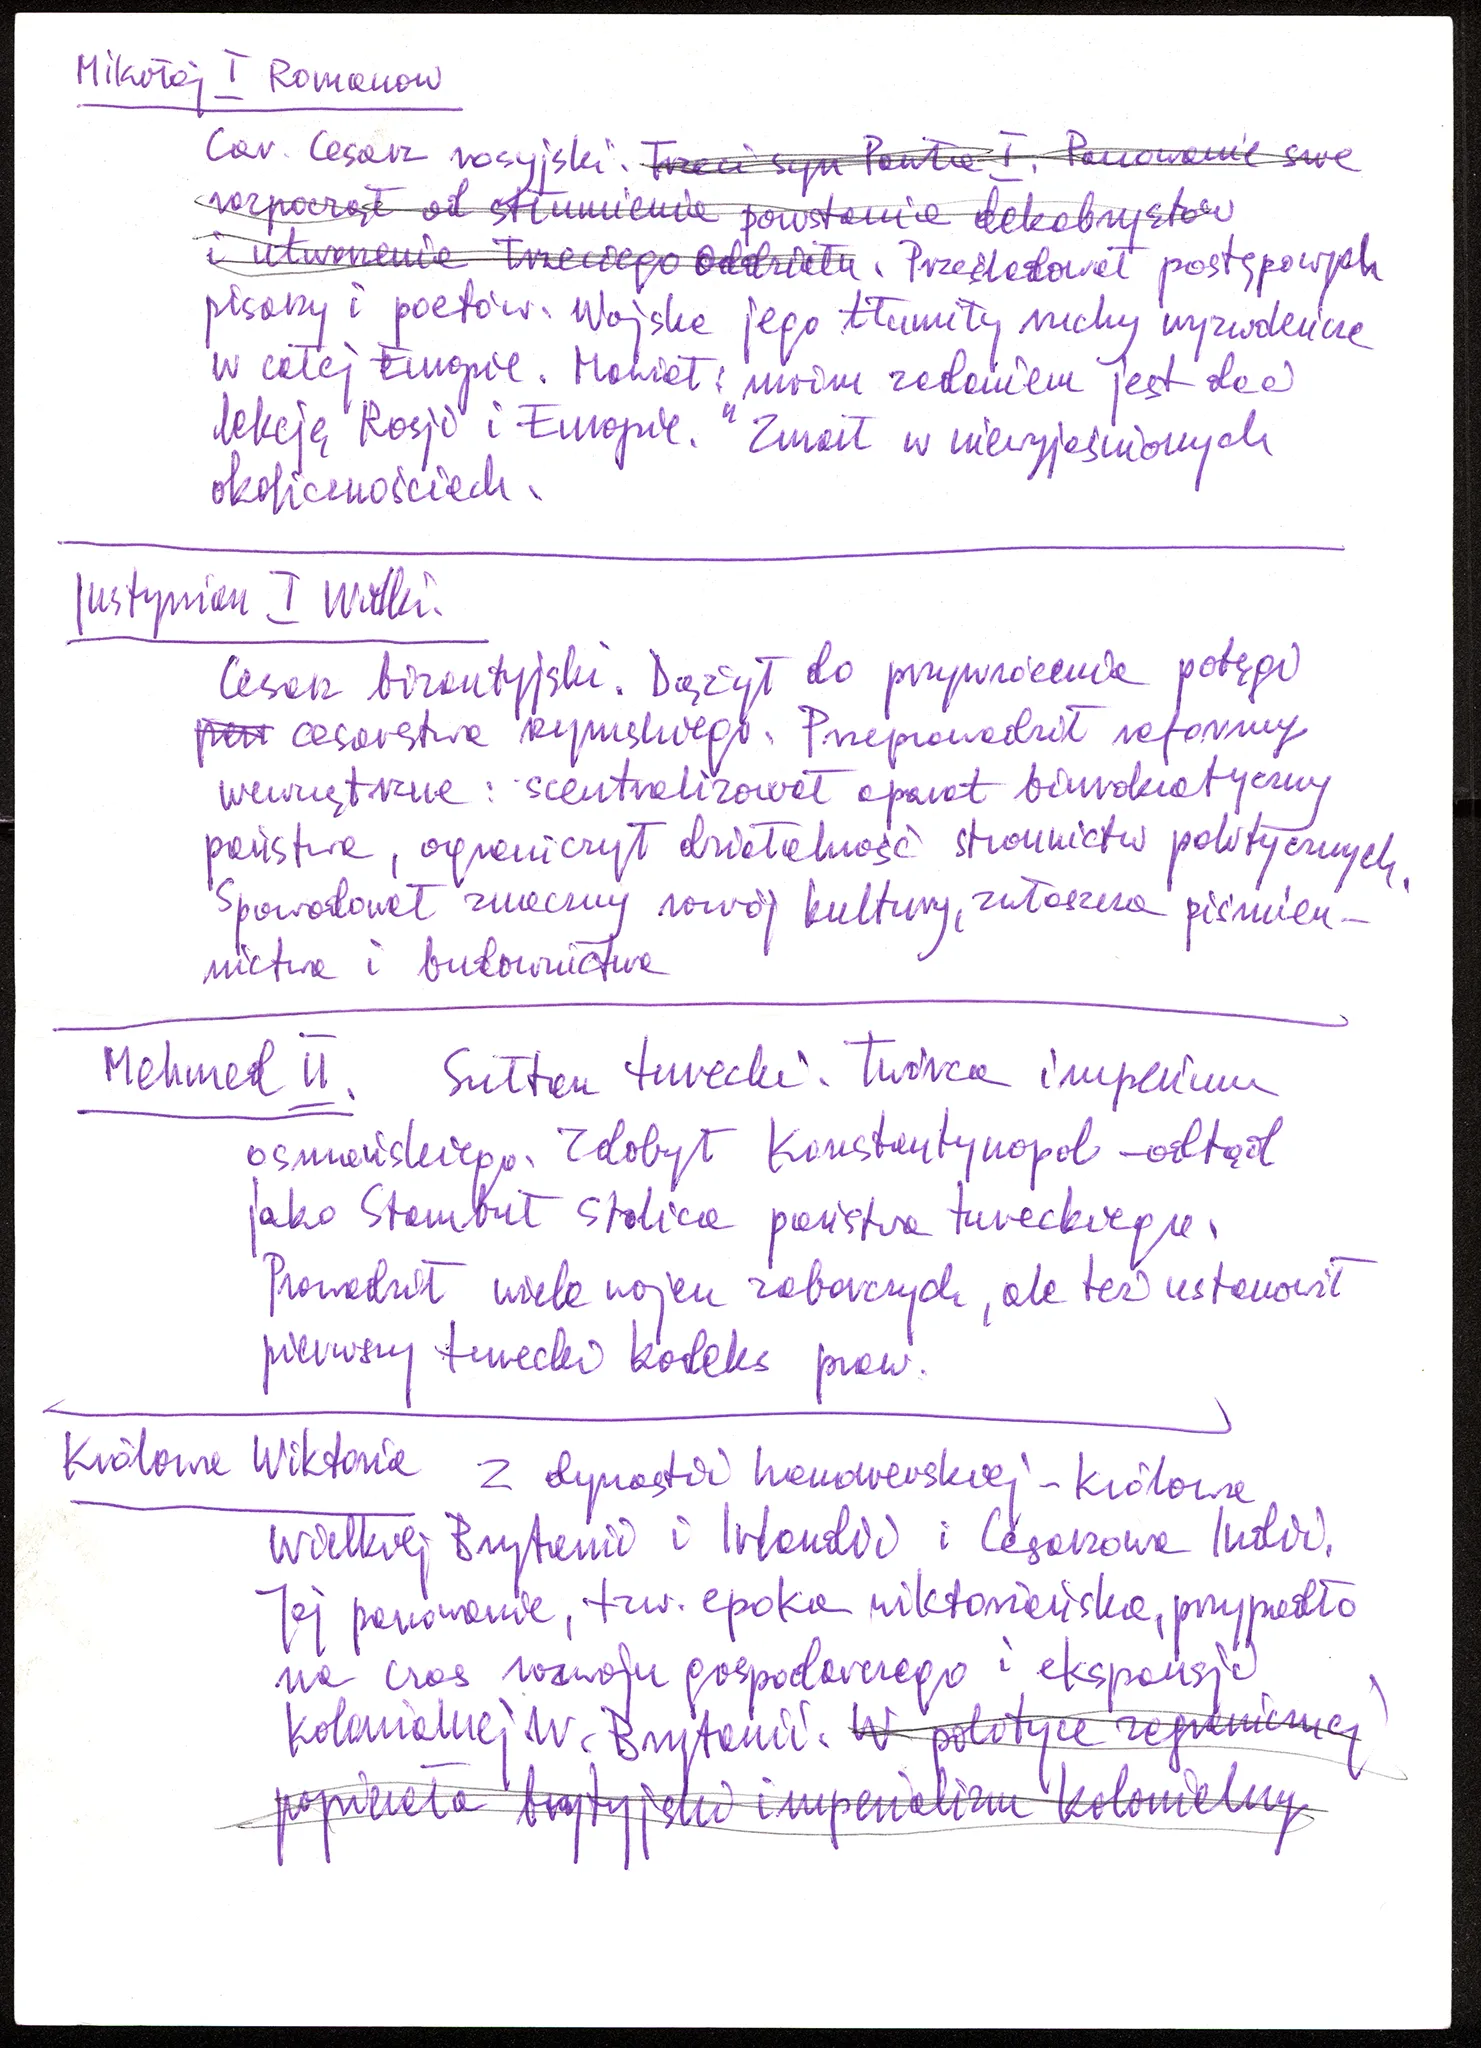 Mikołaj I Romanow
Car. Cesarz rosyjski. Trzeci syn Pawła I. Panowanie swe
rozpoczął od stłumienia powstania dekabrystów
i utworzenia Trzeciego Oddziału. Prześladował postępowych
pisarzy i poetów. Wojska jego tłumiły ruchy wyzwoleńcze
w całej Europie. Mawiał: moim zadaniem jest dać
lekcję Rosji i Europie." Zmarł w niewyjaśnionych
okolicznościach.
Justynian I Wielki.
Cesarz bizantyjski. Dążył do przywrócenia potęgi
cesarstwa rzymskiego. Przeprowadził reformy
wewnętrzne: scentralizował aparat biurokratyczny
państwa, ograniczył działalność stronnictw politycznych.
Spowodował znaczny rozwój kultury, zwłaszcza piśmien-
nictwa i budownictwa
Mehmed II. Sułtan turecki. Twórca imperium
osmańskiego. Zdobył Konstantynopol - odtąd
jako Stambuł stolica państwa tureckiego.
Prowadził wiele wojen zaborczych, ale też ustanowił
pierwszy turecki kodeks praw.
Królowa Wiktoria Z dynastii hanowerskiej - Królowa
Wielkiej Brytanii i Irlandii i Cesarzowa Indii.
Jej panowanie, tzw. epoka wiktoriańska, przypadło
na czas rozwoju gospodarczego i ekspansji
kolonialnej W. Brytanii. W polityce zagranicznej
popierała brytyjski imperializm kolonialny